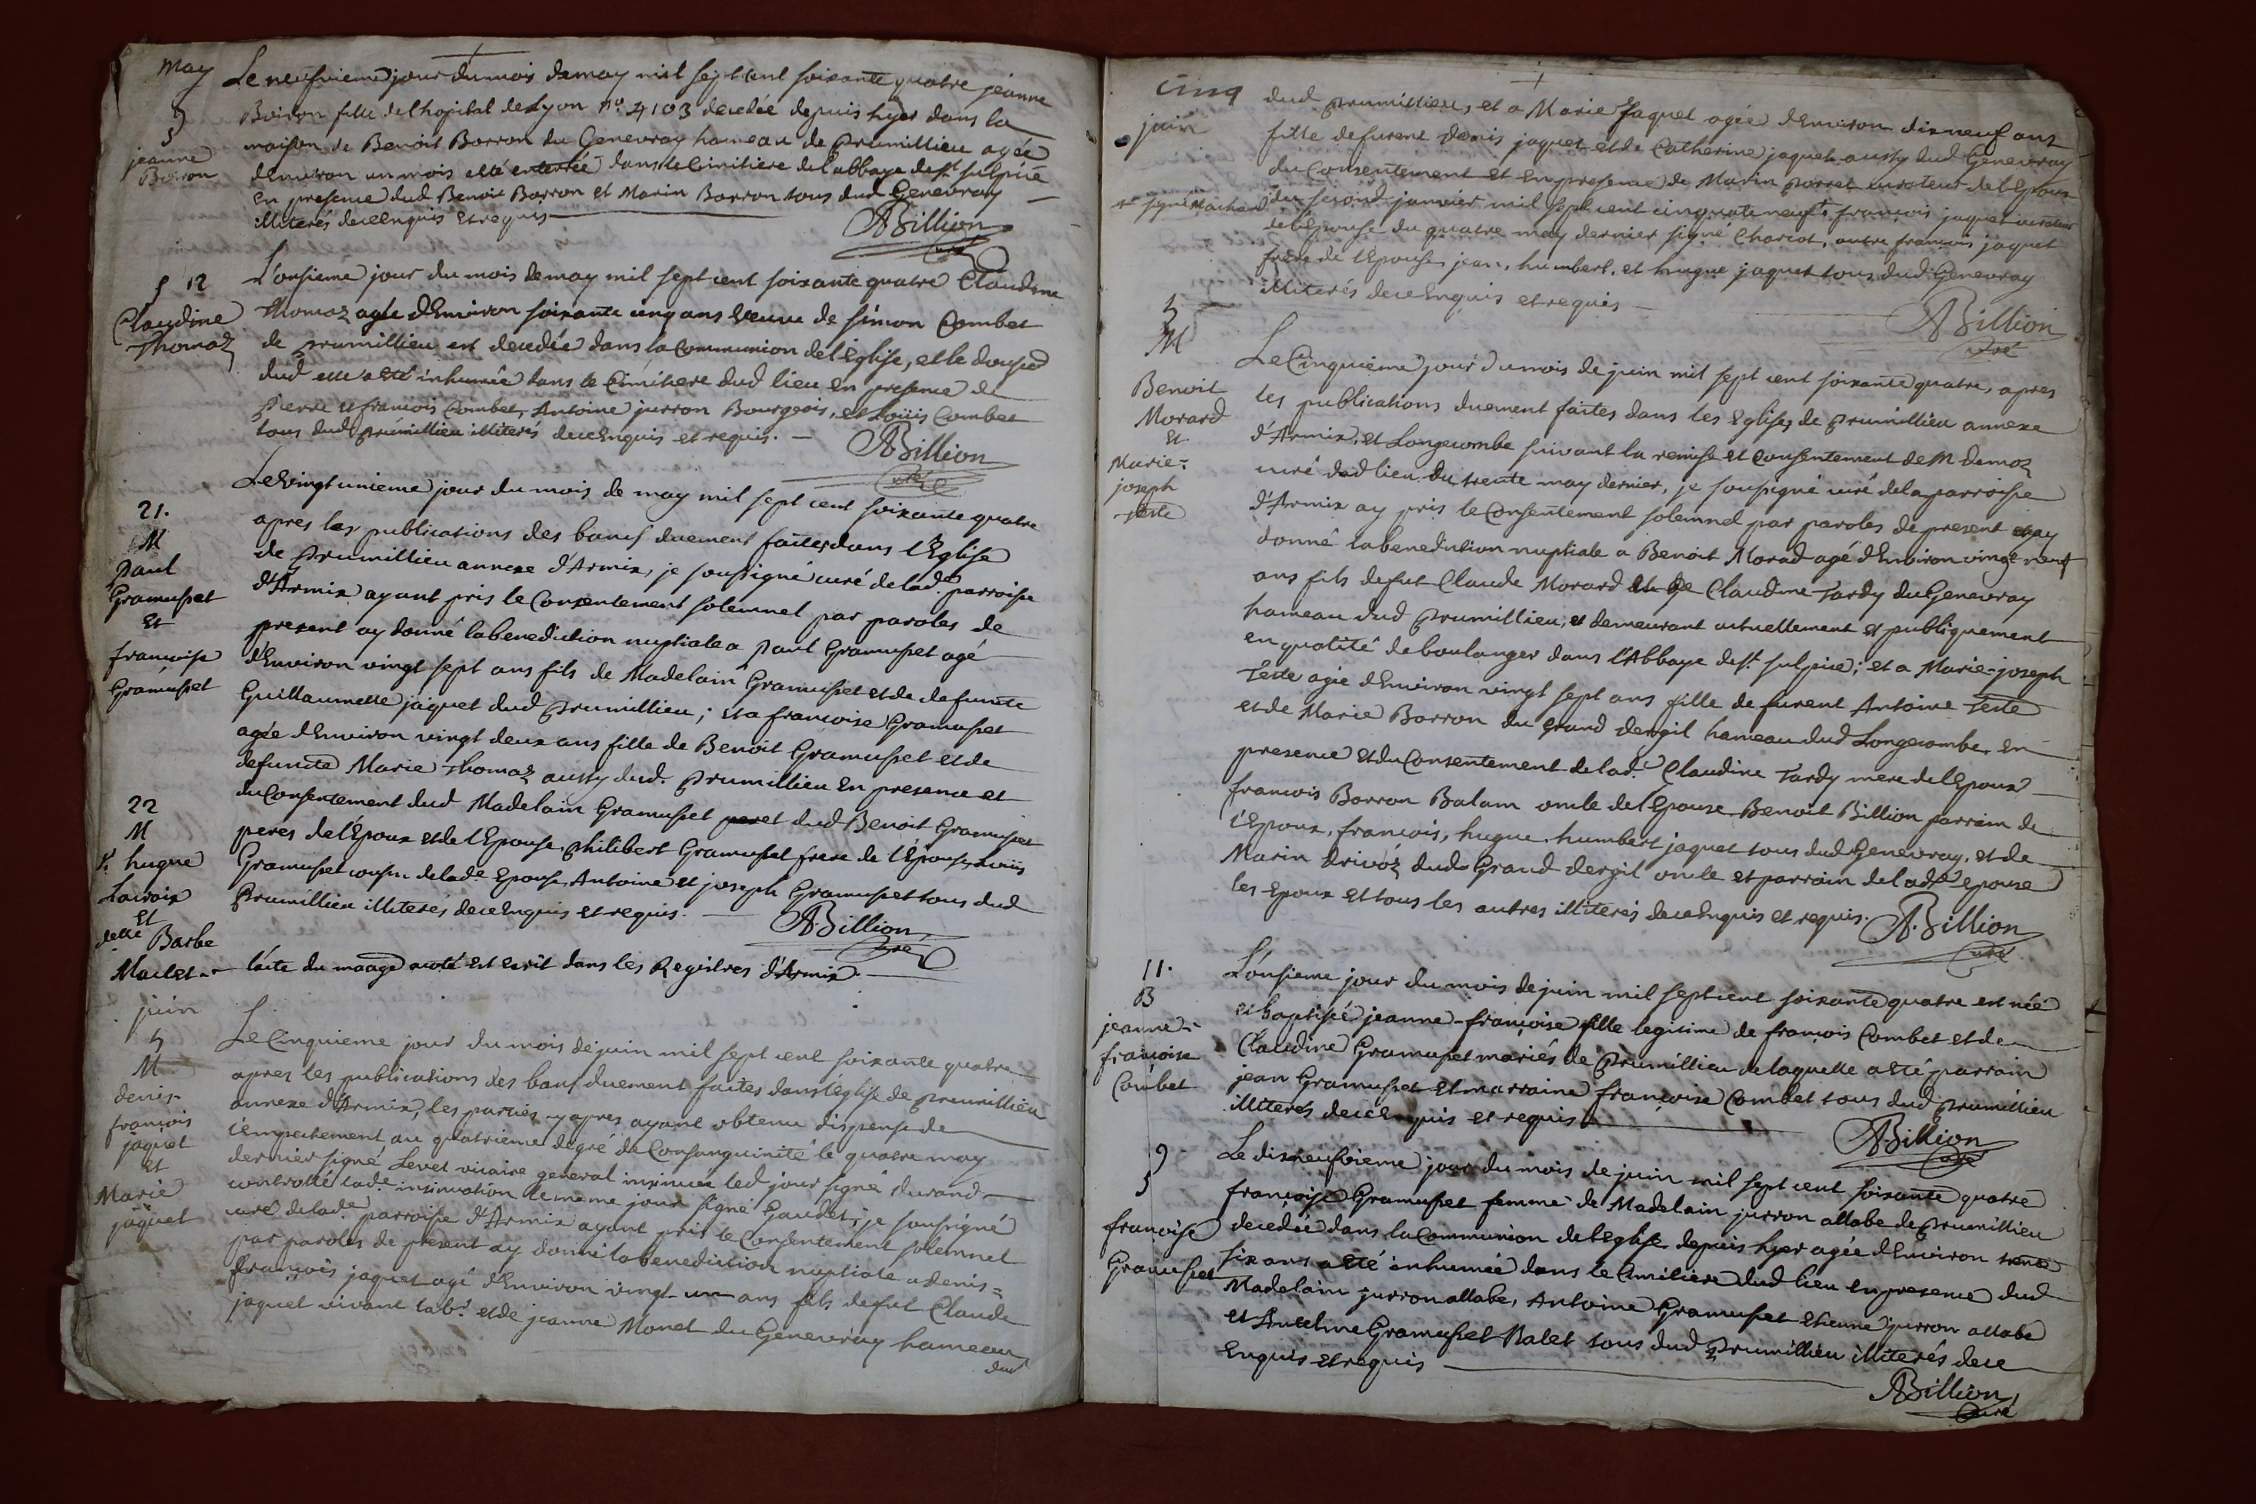 may
9
S
jeanne
Boiron
Le neufvieme jour du mois de may mil sept cent soixante quatre jeanne
Boiron fille de l'hopital de Lyon n.º 4103 decedée depuis hyer dans la
maison de Benoit Borron du Genevray hameau de Prumillieu agée
d'Environ un mois a été enterrée dans le Cimitiere de l'abbaye de St. sulpice
en presence dud Benoit Borron et Marin Borron tous dud Genevray
illiterés de ce Enquis et requis
ABillion
Curé
S 12
Claudine
Thomaz
L'onsieme jour du mois de may mil sept cent soixante quatre Claudine
Thomaz agée d'Environ soixante cinq ans veuve de simon Combet
de prumillieu est decedée dans la Communion de l'église, et le dousie
dud elle a été inhumée dans le Cimitiere dud lieu en presence de
pierre et francois Combet, Antoine jurron Bourgeois, et Loüis Combet
tous dud prumillieu illiterés de ce Enquis et requis.
ABillion
Curé
21.
M
Paul
Gramusset
Et
francoise
Gramusset
Le vingt unieme jour du mois de may mil sept cent soixante quatre
apres les publications des bans duement faites dans l'Eglise
de Prumillieu annexe d'Armix, je soussigné curé de lad.e parroisse
d'Armix ayant pris le Consentement solemnel par paroles de
present ay donné la benediction nuptiale a Paul Gramusset agé
d'Environ vingt sept ans fils de Madelain Gramusset et de defuncte
Guillaumette jaquet dud Prumillieu; et a francoise Gramusset
agée d'Environ vingt deux ans fille de Benoit Gramusset et de
defuncte Marie Thomaz aussy dud. Prumillieu En presence et
du Consentement dud Madelain Gramusset et dud Benoit Gramusset
peres de l'Epoux et de l'Epouse, philibert Gramusset frere de l'épouse, Loüis
Gramusset cousin de lad.e Epouse, Antoine et joseph Gramusset tous dud
Prumillieu illiterés de ce Enquis et requis.
ABillion
Curé
22
M
Sr. hugue
Lacroix
Et
delle Barbe
Maclet
l'acte du mariage acoté est ecrit dans les Registres d'Armix.
juin
5
M
denis-
françois
jaquet
et
Marie
jaquet
Le Cinquieme jour du mois de juin mil sept cent soixante quatre
apres les publications des bans duement faites dans l'eglise de prumillieu
annexe d'Armix, les parties cy apres ayant obtenu dispense de
l'empechement au quatrieme degré de Consanguinité le quatre may
dernier signé Levet vicaire general insinuée led jour signé durand
controlé lad.e insinuation le meme jour signé Gaudet; je soussigné
curé de lad.e parroisse d'Armix ayant pris le Consentement solemnel
par paroles de present ay donné la benediction nuptiale a denis-
françois jaquet agé d'Environ vingt-un ans fils de fut Claude
jaquet vivant lab.r et de jeanne Monet du Genevray hameau
dud
cinq
juin
dud prumillieu, et a Marie Jaquet agée d'Environ dixneuf ans
fille de furent denis jaquet et de Catherine jaquet aussy dud Genevray
du Consentement et en presence de Marin Borret curateur de l'Epoux
signé Machard
du second janvier mil sept cent cinquante neuf, francois jaquet curateur
de l'épouse du quatre may dernier signé Charcot, autre francois jaquet
frere de l'Epouse, jean, humbert, et hugue jaquet tous dud Genevray
illiterés de ce Enquis et requis
ABillion
curé
5
M
Benoit
Morard
Et
Marie-
joseph
teste
Le Cinquieme jour du mois de juin mil sept cent soixante quatre, apres
les publications duement faites dans les Eglises de prumillieu annexe
d'Armix, et Longecombe suivant la remise et Consentement de M. Demoz
curé dud lieu du trente may dernier, je soussigné curé de la parroisse
d'Armix ay pris le Consentement solemnel par paroles de present et ay
donné la benediction nuptiale a Benoit Morad agé d'Environ vingt neuf
ans fils de fut Claude Morard et de Claudine Tardy du Genevray
hameau dud Prumillieu, et demeurant actuellement et publiquement
en qualité de boulanger dans l'Abbaye de St. sulpice; et a Marie-joseph
Teste agée d'Environ vingt sept ans fille de furent Antoine Teste
et de Marie Borron du Grand dergil hameau dud Longecombe, en
presence et du Consentement de lad.e Claudine Tardy mere de l'Epoux
francois Borron Balam oncle de l'Epouse Benoit Billion parrain de
l'Epoux, francois, hugue, humbert jaquet tous dud Genevray, et de
Marin drivoz dud Grand dergil oncle et parrain de lad.e epouse
les Epoux et tous les autres illiterés de ce Enquis et requis.
A.Billion
Curé
11.
B
jeanne-
françoise
Combet
L'onsieme jour du mois de juin mil sept cent soixante quatre est née
et baptisée jeanne-françoise fille legitime de françois Combet et de
Claudine Gramusset mariés de Prumillieu de laquelle a été parrain
jean Gramusset et marraine françoise Combet tous dud prumillieu
illiterés de ce Enquis et requis
ABillion
Curé
9
S
françoise
Gramusset
Le dixneufvieme jour du mois de juin mil sept cent soixante quatre
françoise Gramusset femme de Madelain jurron allabe de prumillieu
decedée dans la Communion de l'eglise depuis hyer agée d'Environ trente
six ans a été inhumée dans le Cimitiere dud lieu en presence dud
Madelain jurron allabe, Antoine Gramusset etienne jurron allabe
et Anselme Gramusset Balet tous dud Prumillieu illiterés de ce
Enquis et requis
ABillion
Curé